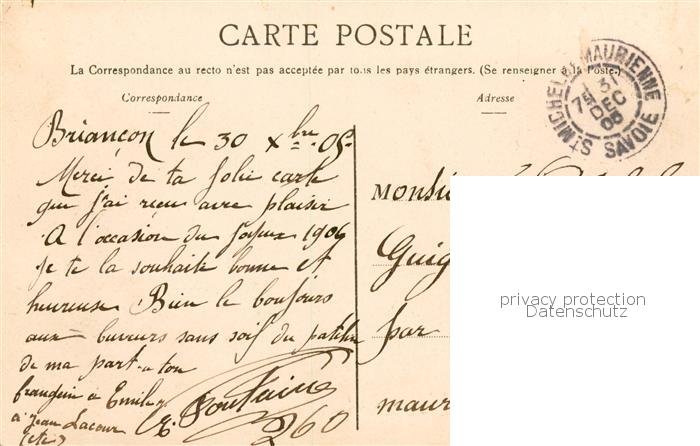 CARTE POSTALE
La Correspondance au recto n'est pas acceptée par tous les pays étrangers. (Se renseigner à la Poste.)
Correspondance
Adresse
ST MICHEL DE MAURIENNE
31
DEC
05
SAVOIE
Briançon le 30 Xbre 05
Merci de ta jolie carte
que j'ai reçu avec plaisir
A l'occasion du joyeux 1906
je te la souhaite bonne et
heureuse Bien le bonjours
aux buveurs sans soif du
de ma part a ton
frangin a Emile
a Jean Lacour
(etc)
E. Fontaine
260
Monsieur
Guig
par
maur
privacy protection
Datenschutz